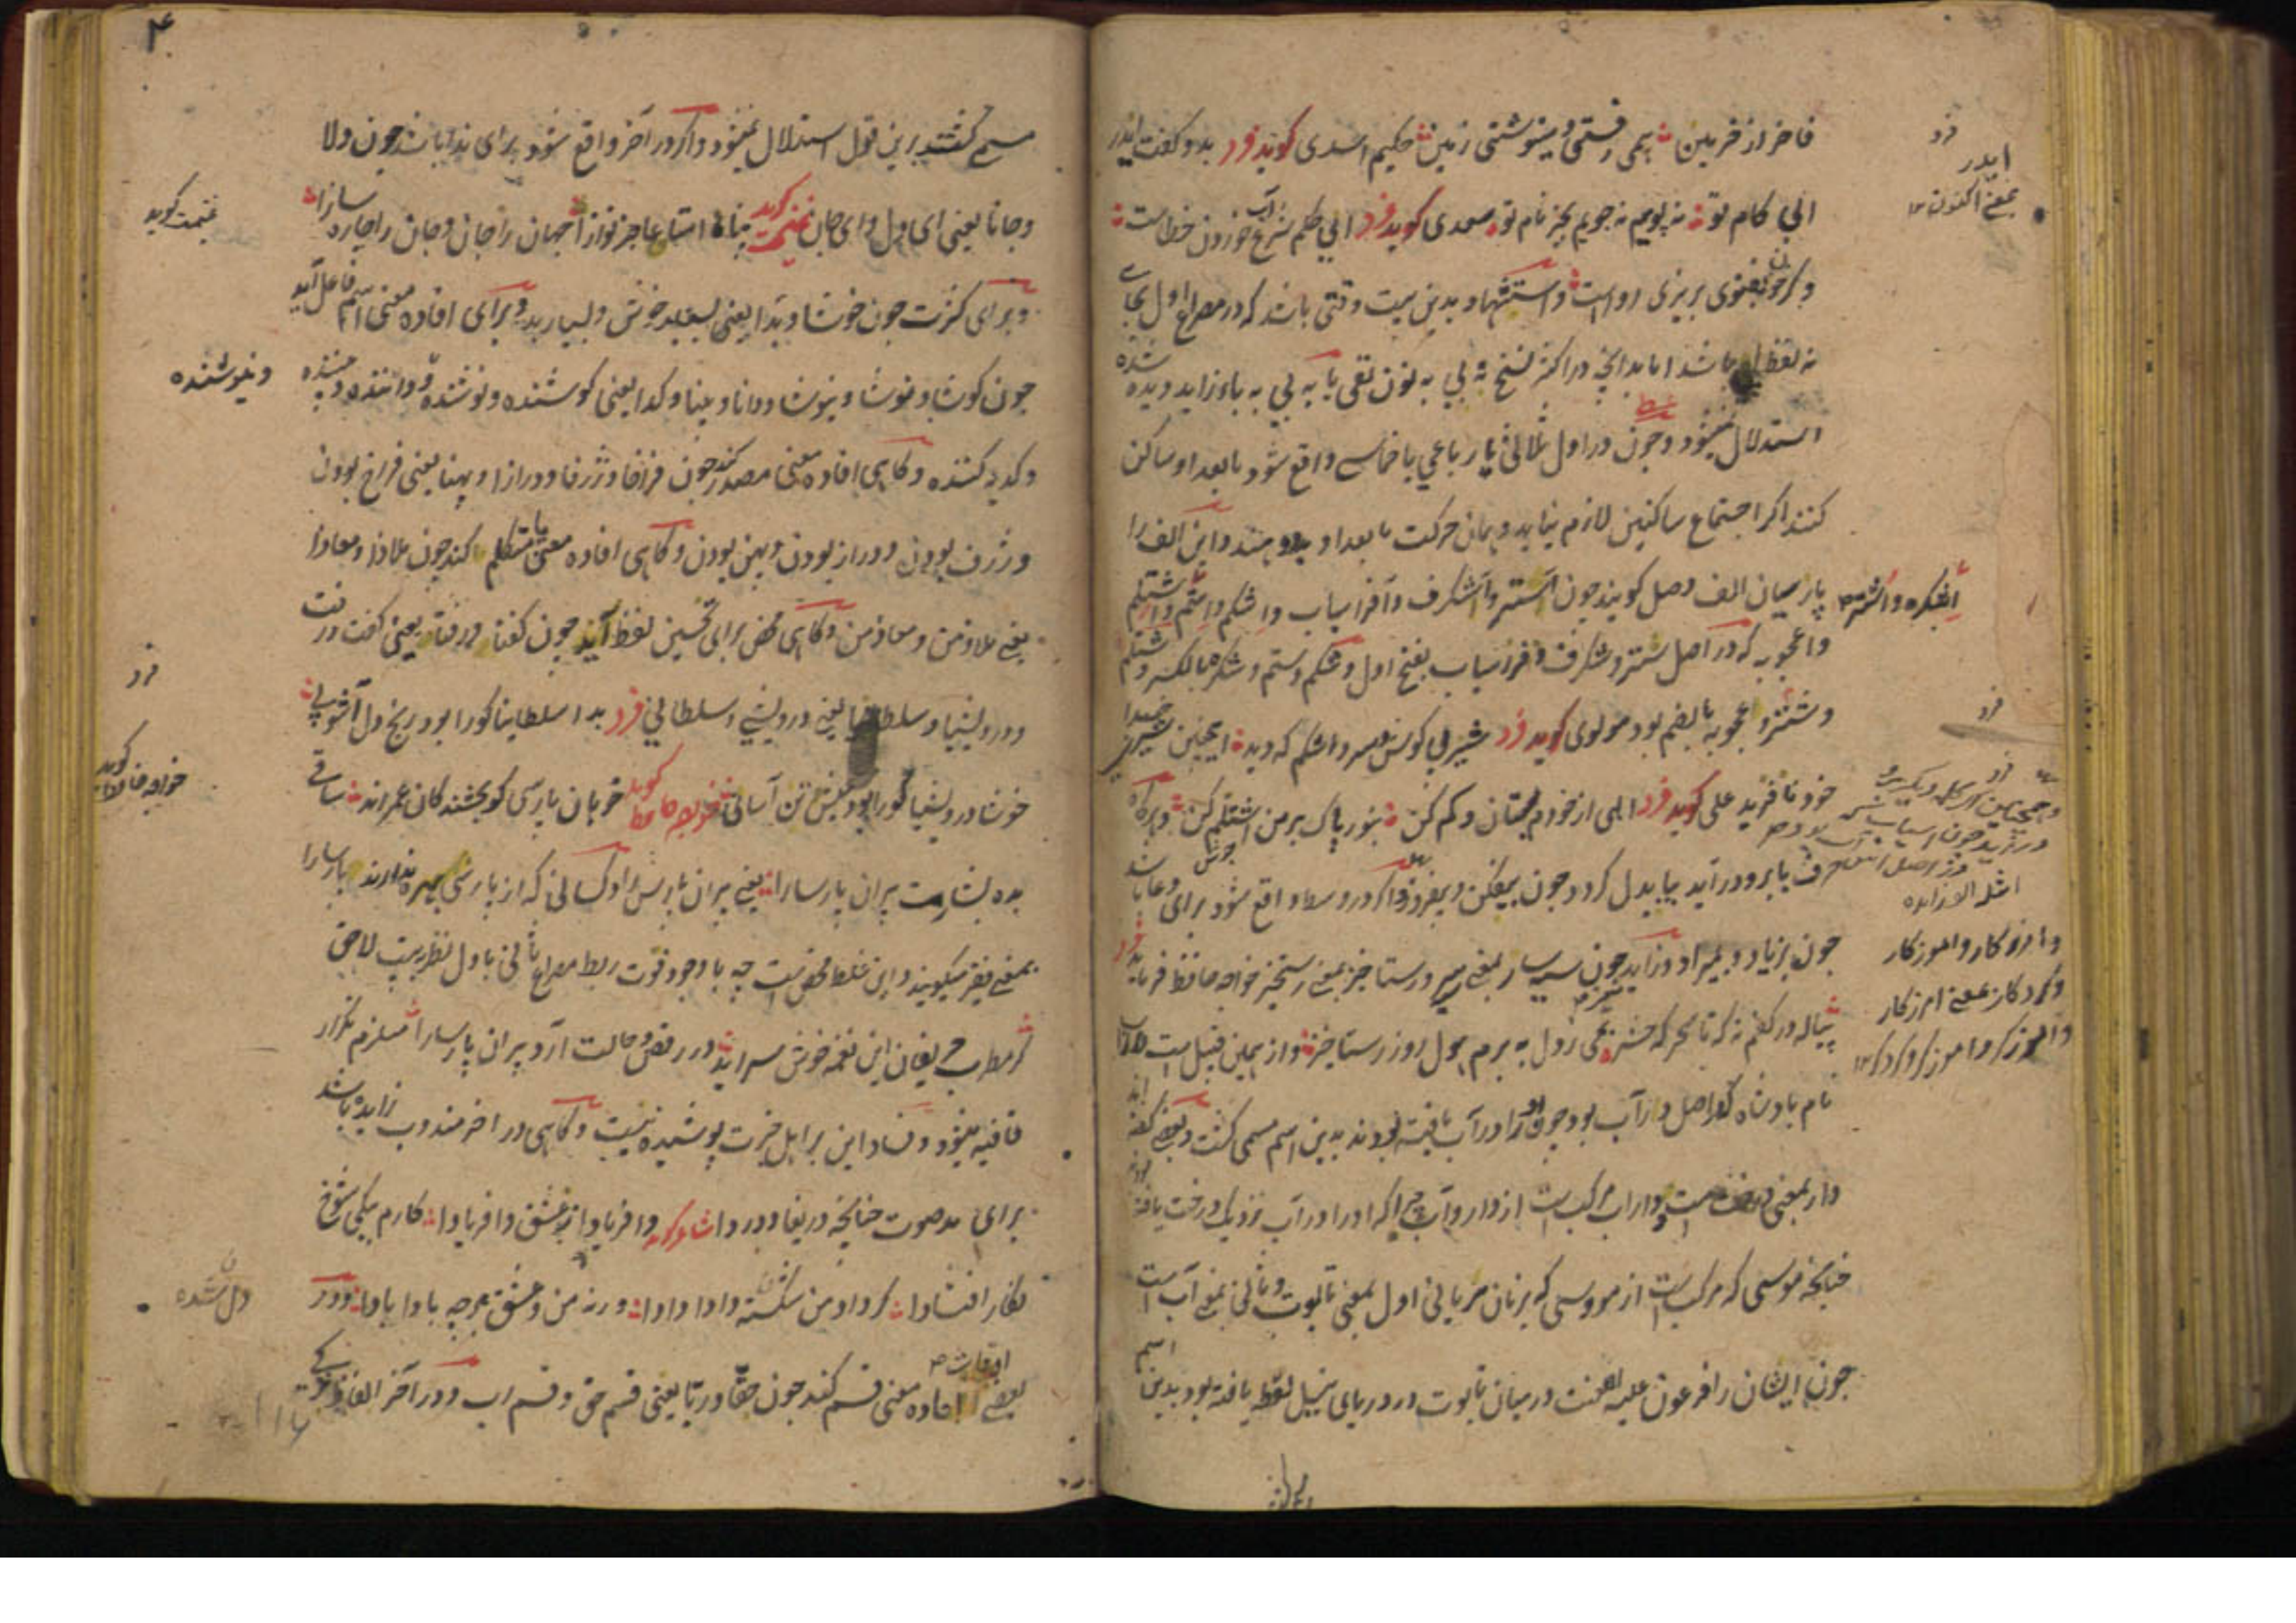 فاخر از فربین همی رفتی و می‌نوشتی زمین حکیم اسدی گوید فرد بدو گفت ایدر
الی کام تو نه پویم نه جویم بجز نام تو سعدی گوید فرد ابی حکم شرع آب خوردن خطاست
وگر خون بفتوی بریزی رواست و استشهاد بدین بیت وقتی باشد که در مصراع اول بجای
نه لفظ باشد اما بدانچه در اکثر نسخ نه بی به نون نفی یا به بی به باء زاید دیده شده
استدلال نمیشود و چون در اول ثلاثی یا رباعی یا خماسی واقع شود مابعد او ساکن
کنند اگر اجتماع ساکنین لازم نیاید و همان حرکت مابعد او بدو دهند و این الف را
پارسیان الف وصل گویند چون اشتر و اشگرف و افراسیاب و اشکم و استم و اشتلم
واعجوبه که در اصل شتر و شگرف و فراسیاب بفتح اول و شکم و ستم و شکره بالکسر و شتلم
و شتر و عجوبه بالضم بود مولوی گوید فرد شیر بی گوش و سر و اشکم که دید اینچنین شیری خدا
خود نافرید علی گوید فرد الهی از خودم بستان و کم کن بنور پاک بر من اشتلم کن و هرگاه
حرف با برو در آید بیا بدل گردد چون بیفکن و بیفروز و اگر در وسط واقع شود برای دعا باشد
چون بزیاد و بمیراد و زاید چون سبسار بمعنی سر و رستاخیز بمعنی رستخیز خواجه حافظ فرماید فرد
پیاله در کفنم نه که تا سحرگه حشر بمی ز دل به برم هول روز رستاخیز و از همین قبیل است داراب
نام بادشاه که در اصل دارآب بود چون او را در آب یافته بودند بدین اسم مسمی گشت و بعضی گفته اند
دار بمعنی درخت است و داراب مرکب است از دار و آب چرا که او را در آب نزدیک درخت یافته بودند
چنانچه موسی که مرکب است از مو و سی که بزبان سریانی اول بمعنی تابوت و ثانی بمعنی آب است
چون ایشان را فرعون علیه اللعنت در میان تابوت در دریای نیل لفظ یافته بود بدین اسم
فرد
ایدر
بمعنی اکنون ۱۲
اشکره و اشتر
فرد
فرد
وامرزکار و آموزکار
وکردکار بمعنی امرزکار
و آموزکر و اموزکر و کردکر ۱۲
۴
مسمی گشتند برین قول استدلال نمیشود و اگر در آخر واقع شود برای ندا باشد چون دلا
و جانا یعنی ای دل و ای جان غنیمت گوید پناها استا عاجز نواز جهان را جان و جان را چاره سازا
و برای کثرت چون خوشا و بدا یعنی بسیار خوش و بسیار بد و برای افاده معنی اسم فاعل آید
چون کوشا و نوشا و نیوشا و دانا و بینا و کدا یعنی کوشنده و نوشنده و داننده و بیننده
و کدیه کننده و گاهی افاده معنی مصدر کند چون فراخا و ژرفا و درازا و پهنا یعنی فراخ بودن
و ژرف بودن و دراز بودن و پهن بودن و گاهی افاده معنی یا متکلم کند چون ملاذا و معاذا
یعنی ملاذ من و معاذ من و گاهی محض برای تحسین لفظ آید چون گفتا و رفتا یعنی گفت و رفت
و درویشیا و سلطانیا یعنی درویشی و سلطانی فرد بدا سلطانیا کورا بود رنج دل آشوبی
خوشا درویشیا کورا بود گنج تن آسانی خواجه حافظ گوید خوبان پارسی گو بخشندگان عمراند ساقی
بده بشارت پیران پارسا را یعنی پیران پارس را و کسانی که از پارسی بهره ندارند پارسا را
بمعنی فقر میگویند و این غلط محض است چه با وجود فوت ربط مصراع ثانی با اول نظر به بیت لاحق
گر مطرب حریفان این نغمه خوش سراید در رقص و حالت آرد پیران پارسا را مستلزم تکرار
قافیه میشود و فساد این بر اهل خبرت پوشیده نیست و گاهی در آخر مندوب زایده باشد
برای مد صوت چنانچه دریغا و دردا شاعر گوید وافریادا ز عشق وافریادا کارم بیکی شوخ
نگار افتادا گر داد من شکسته دادا دادا ورنه من و عشق هرچه بادا بادا و در
بعضی اوقات افاده معنی قسم کند چون حقا و ربا یعنی قسم حق و قسم رب و در آخر الفاظ
غنیمت گوید
و نیوشنده
فرد
خواجه حافظ گوید
دل شده